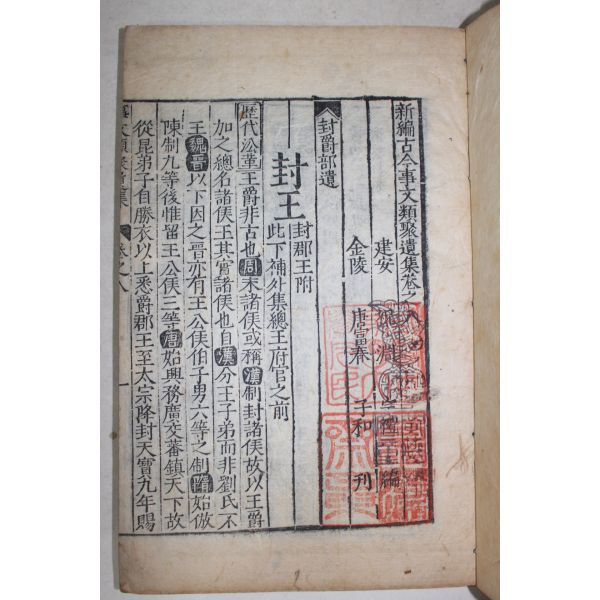 新編古今事文類聚遺集卷之八
建安 祝淵 宗禮 編
金陵 唐富春 子和 刊
封爵部遺
封王
封郡王附
此下補外集總王府官之前
歷代㳂革王爵非古也周末諸侯或稱漢制封諸侯故以王爵
加之總名諸侯王其實諸侯也自漢分王子弟而非劉氏不
王魏晉以下因之晉亦有王公侯伯子男六等之制隋始倣
陳制九等後惟留王公侯三等唐始興務廣支蕃鎮天下故
從昆弟子自勝衣以上悉爵郡王至太宗降封天寶九年賜
卷之八
一